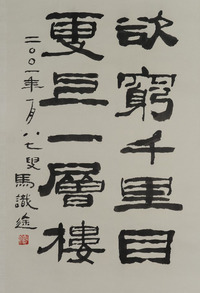 欲窮千里目
更上一層樓
二〇〇一年一月八七叟馬識途